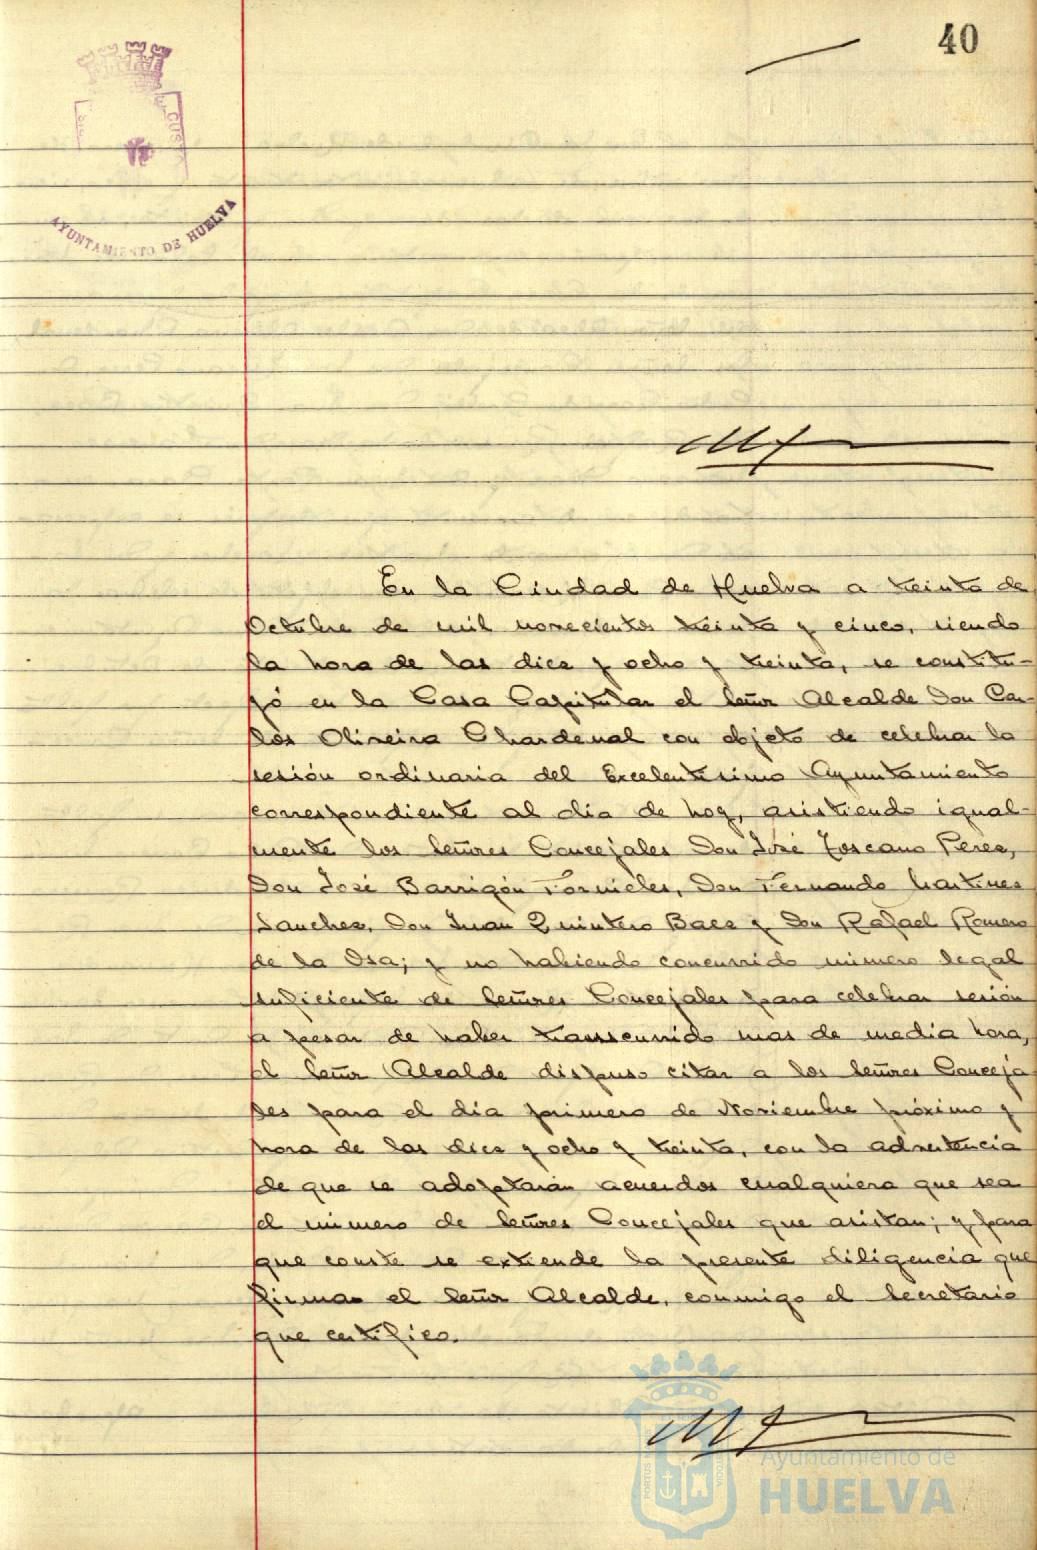 40
AYUNTAMIENTO DE HUELVA
En la Ciudad de Huelva a treinta de
Octubre de mil novecientos treinta y cinco, siendo
la hora de las diez y ocho y treinta, se constitu-
yó en la Casa Capitular el Señor Alcalde Don Car-
los Oliveira Chardenal con objeto de celebrar la
sesión ordinaria del Excelentisimo Ayuntamiento
correspondiente al dia de hoy, asistiendo igual-
mente los Señores Concejales Don José Toscano Perez,
Don José Barrigón Fornieles, Don Fernando Martinez
Sanchez, Don Juan Quintero Baez y Don Rafael Romero
de la Osa; y no habiendo concurrido número legal
suficiente de Señores Concejales para celebrar sesión
a pesar de haber transcurrido mas de media hora,
el Señor Alcalde dispuso citar a los Señores Conceja
les para el dia primero de Noviembre próximo y
hora de las diez y ocho y treinta, con la advertencia
de que se adoptarán acuerdos cualquiera que sea
el número de Señores Concejales que asistan; y para
que conste se extiende la presente diligencia que
firma el Señor Alcalde, conmigo el Secretario
que certifico.
Ayuntamiento de
HUELVA